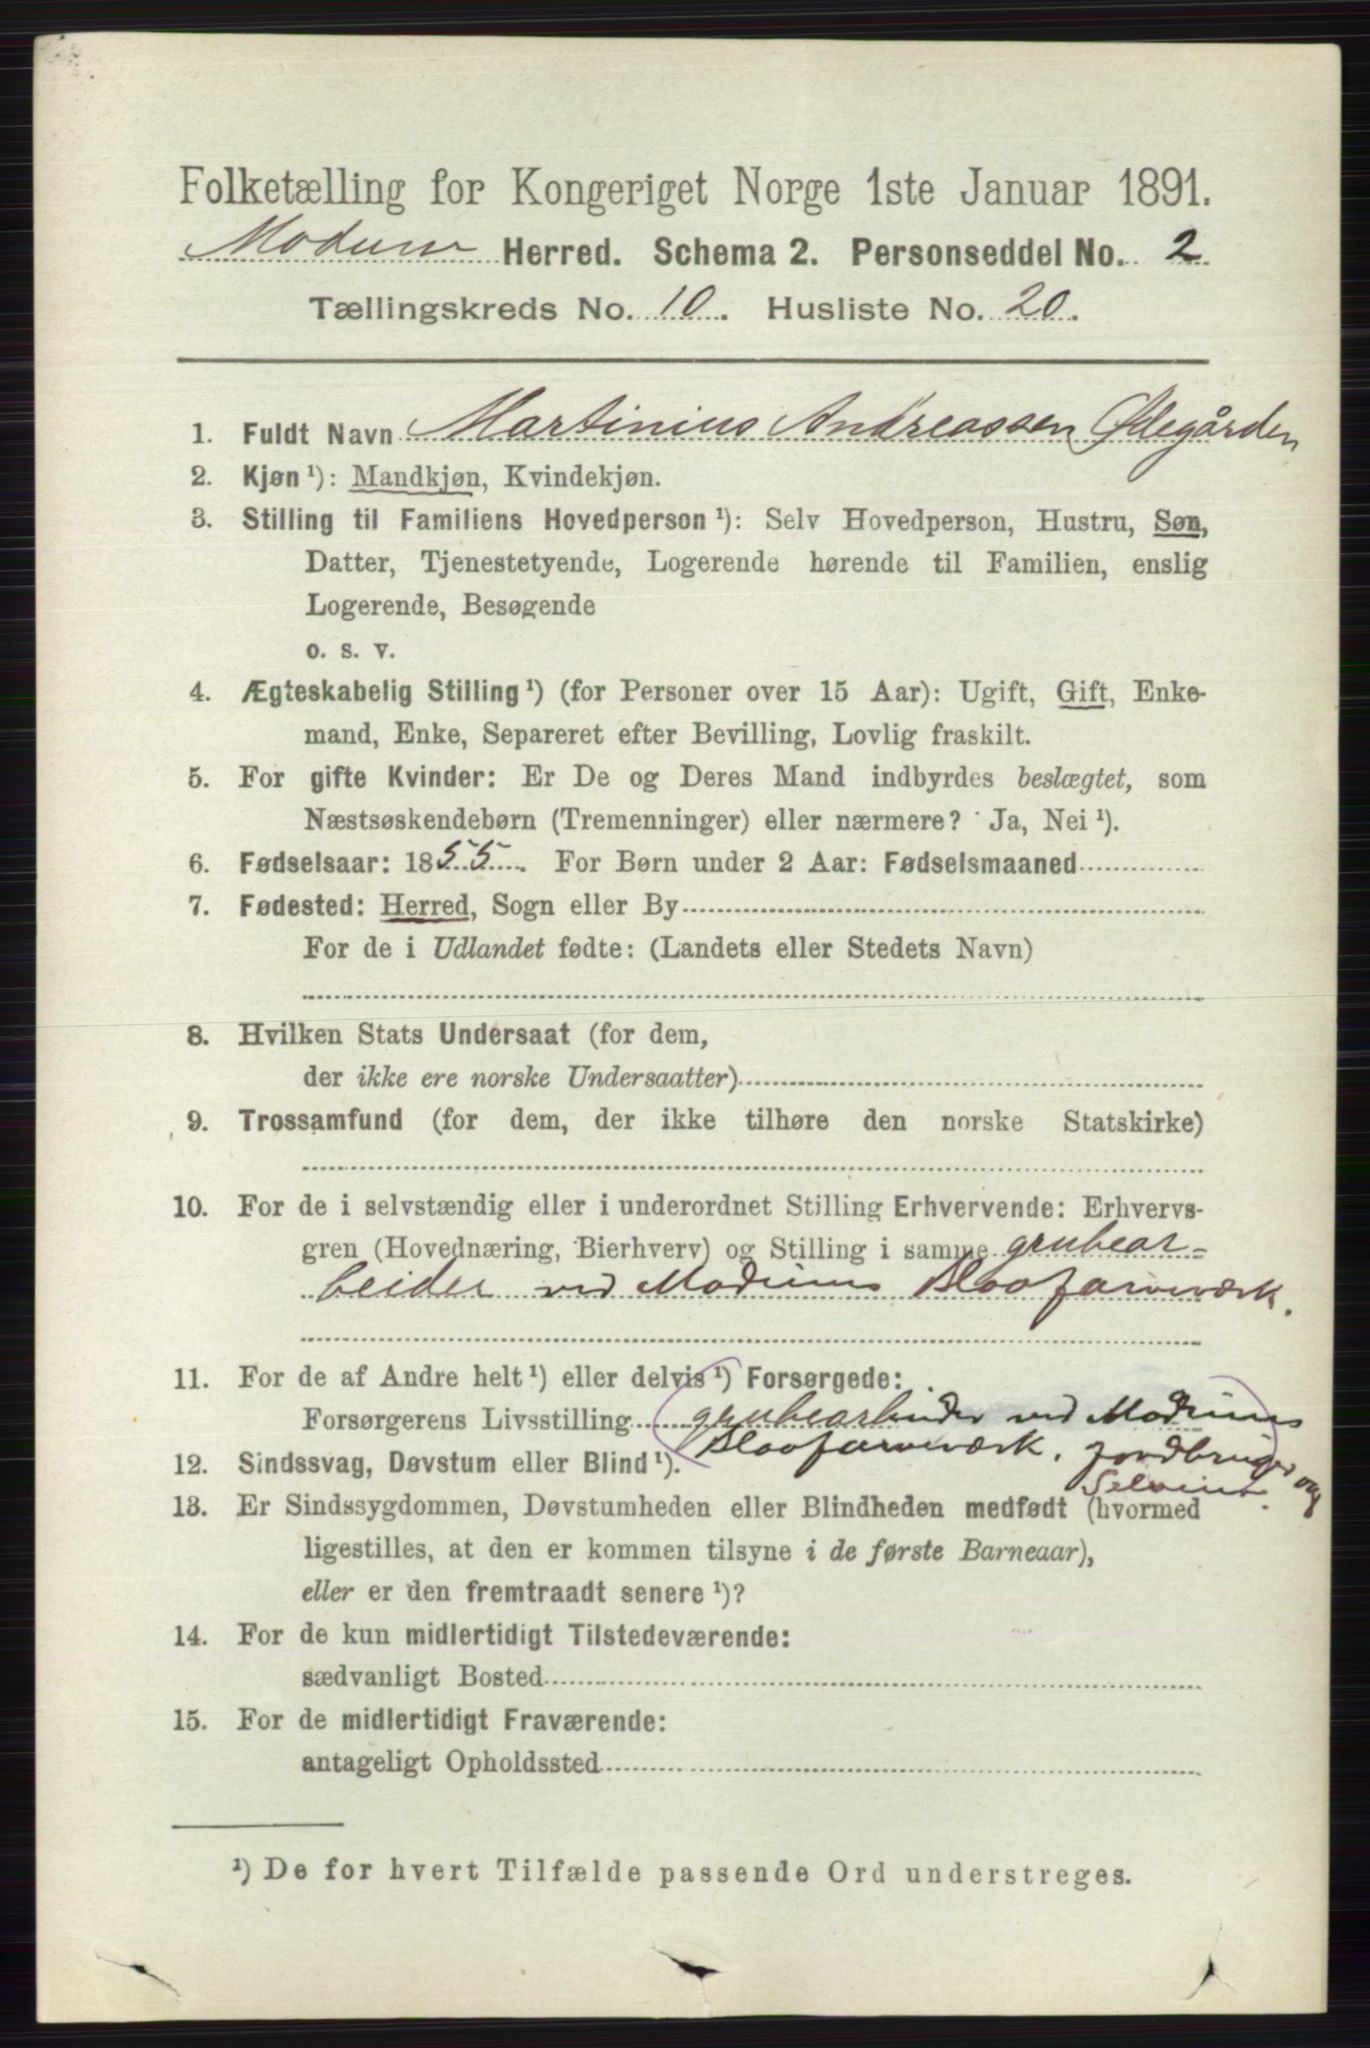 Folketælling for Kongeriget Norge 1ste Januar 1891.
Modum Herred. Schema 2. Personseddel No. 2
Tællingskreds No. 10. Husliste No. 20.
1. Fuldt Navn Martinius Andreassen Ødegården
2. Kjøn ¹): Mandkjøn, Kvindekjøn.
3. Stilling til Familiens Hovedperson ¹): Selv Hovedperson, Hustru, Søn,
Datter, Tjenestetyende, Logerende hørende til Familien, enslig
Logerende, Besøgende
o. s. v.
4. Ægteskabelig Stilling ¹) (for Personer over 15 Aar): Ugift, Gift, Enke-
mand, Enke, Separeret efter Bevilling, Lovlig fraskilt.
5. For gifte Kvinder: Er De og Deres Mand indbyrdes beslægtet, som
Næstsøskendebørn (Tremenninger) eller nærmere? Ja, Nei ¹).
6. Fødselsaar: 1855. For Børn under 2 Aar: Fødselsmaaned
7. Fødested: Herred, Sogn eller By
For de i Udlandet fødte: (Landets eller Stedets Navn)
8. Hvilken Stats Undersaat (for dem,
der ikke ere norske Undersaatter)
9. Trossamfund (for dem, der ikke tilhøre den norske Statskirke)
10. For de i selvstændig eller i underordnet Stilling Erhvervende: Erhvervs-
gren (Hovednæring, Bierhverv) og Stilling i samme grubear-
beider ved Modums Blaafarveværk.
11. For de af Andre helt ¹) eller delvis ¹) Forsørgede:
Forsørgerens Livsstilling grubearbeider ved Modums
Blaafarveværk. jordbruger og
12. Sindssvag, Døvstum eller Blind ¹).
Selveier.
13. Er Sindssygdommen, Døvstumheden eller Blindheden medfødt (hvormed
ligestilles, at den er kommen tilsyne i de første Barneaar),
eller er den fremtraadt senere ¹)?
14. For de kun midlertidigt Tilstedeværende:
sædvanligt Bosted
15. For de midlertidigt Fraværende:
antageligt Opholdssted
¹) De for hvert Tilfælde passende Ord understreges.